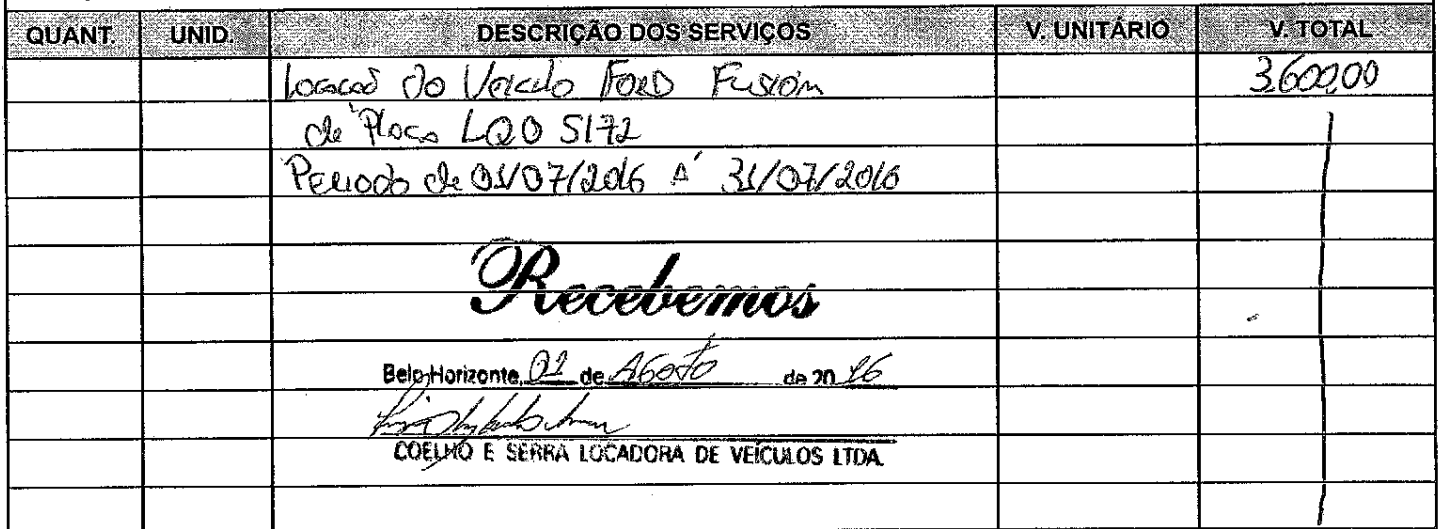 QUANT. UNID. DESCRIÇÃO DOS SERVIÇOS V. UNITÁRIO V. TOTAL
Locacao do Veiculo FORD Fusion 3.600,00
de Placa LQO 5172
Periodo de 01/07/2016 A 31/07/2016
Recebemos
Belo Horizonte, 01 de Agosto de 2016
COELHO E SERRA LOCADORA DE VEÍCULOS LTDA.